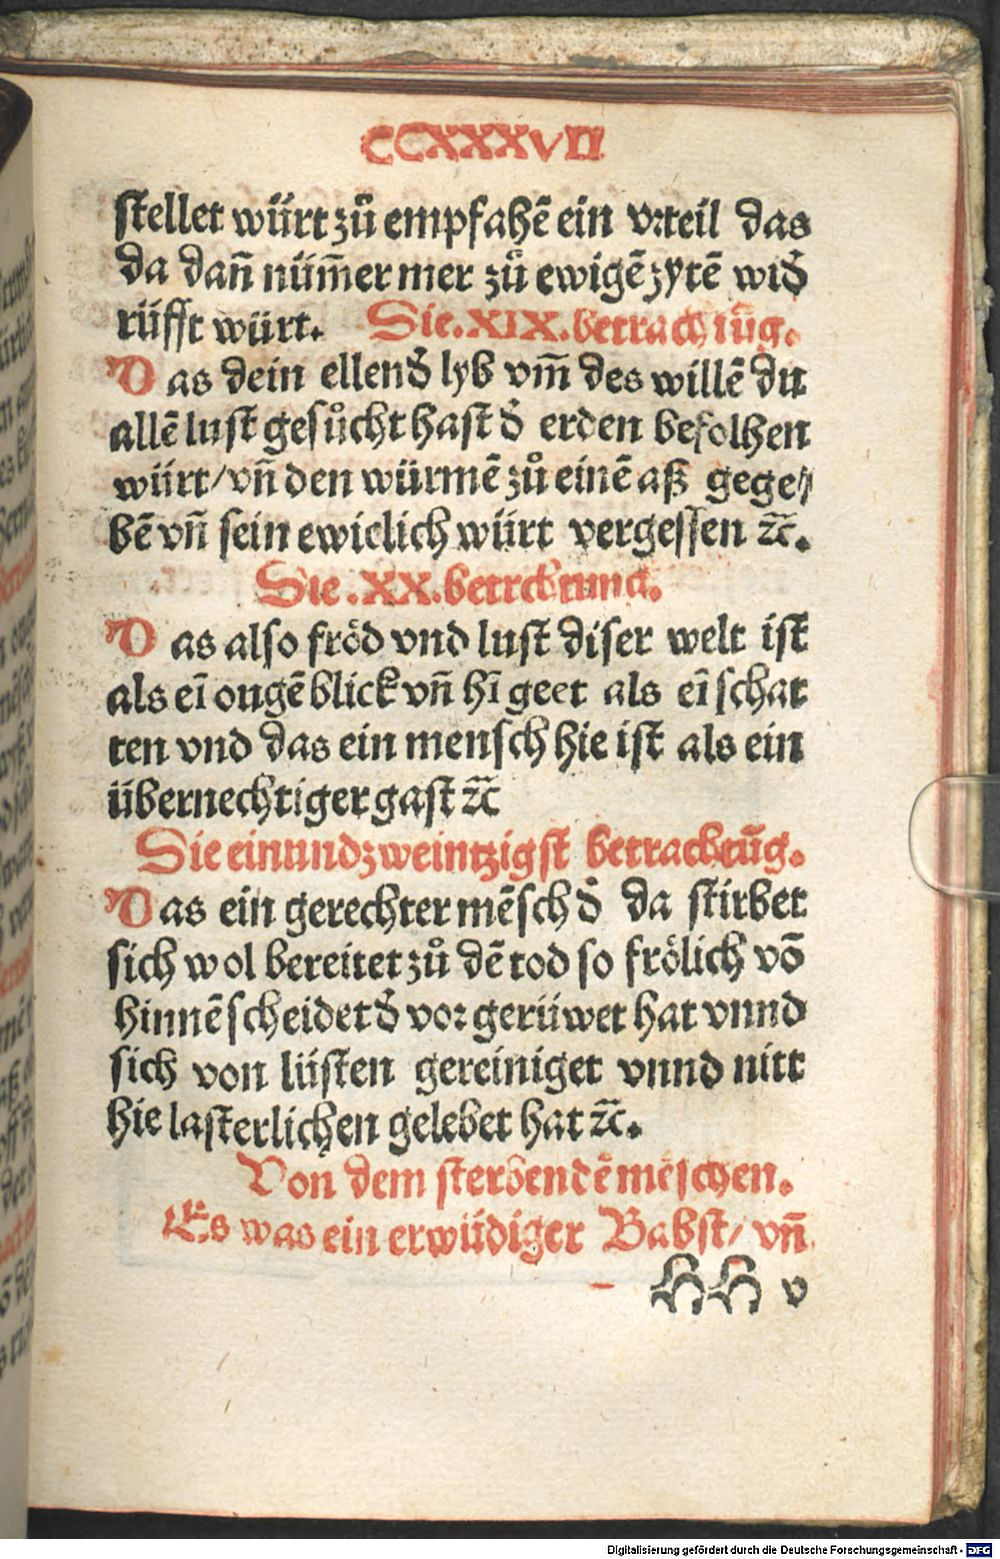 CCXXXVII
stellet würt zů empfahē ein vꝛteil das
da dañ nüm̄er mer zů ewigē zytē wid̛
rüfft würt. Die .XIX. betrachtūg.
Das dein ellend̛ lyb vm̄ des willē du
allē lust gesůcht hast d̛ erden befolhen
würt/ vñ den würmē zů einē aß gege⸗
bē vñ sein ewiclich würt vergessen ⁊c̄.
Die .XX. betrchtung.
Das also fröd vnd lust diser welt ist
als eī ougē blick vñ hī geet als eī schat
ten vnd das ein mensch hie ist als ein
übernechtiger gast ⁊c̄
Die einundzweintzigst betrachtūg.
Das ein gerechter mēsch d̛ da stirbet
sich wol bereitet zů dē tod so frölich vō
hinnē scheidet d̛ voꝛ gerüwet hat vnnd
sich von lüsten gereiniget vnnd nitt
hie lasterlichen gelebet hat ⁊c̄.
Von dem sterbendē mēschen.
Es was ein erwüdiger Babst/ vñ
HH v
Digitalisierung gefördert durch die Deutsche Forschungsgemeinschaft - DFG